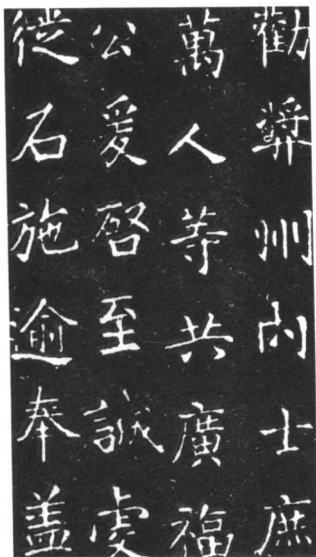 勸奬州內士庶
萬人等共廣福
公爰啓至誠虔
從石施逾奉盖